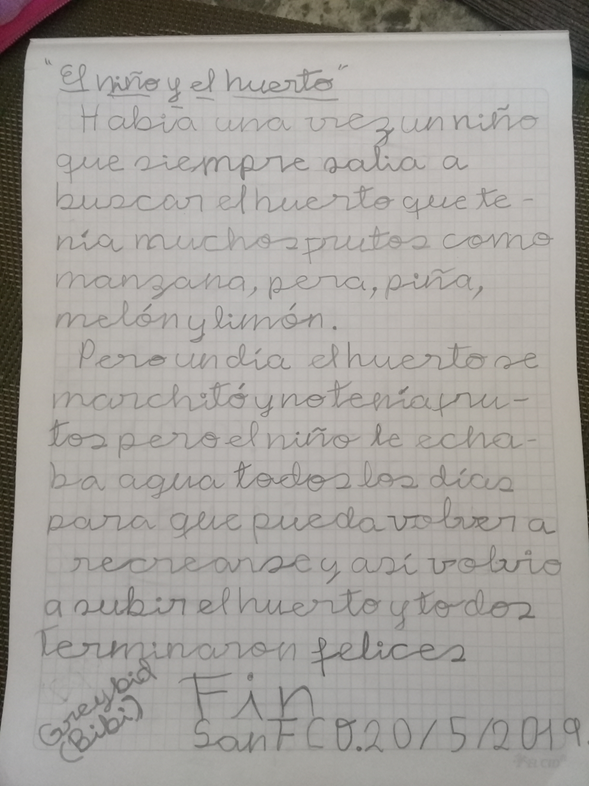 "El niño y el huerto"
Había una vez un niño
que siempre salia a
buscar el huerto que te-
nía muchos frutos como
manzana, pera, piña,
melón y limón.
Pero un día el huerto se
marchitó y no tenía fru-
tos pero el niño le echa-
ba agua todos los días
para que pueda volver a
recrearse y así volvio
a subir el huerto y todos
terminaron felices
Fin
Greybid
(Bibi)
San FCO. 20/5/2019.